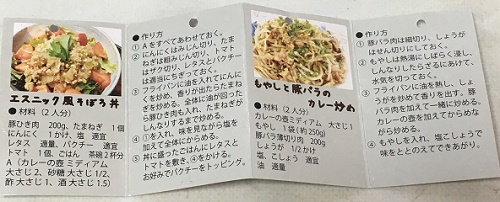 エスニック風そぼろ丼
●材料(2人分)
豚ひき肉 200g、たまねぎ 1個
にんにく 1かけ、塩 適宜
レタス 適量、パクチー 適宜
トマト 1個、ごはん 茶碗2杯分
A(カレーの壺ミディアム
大さじ2、砂糖 大さじ1/2、
酢 大さじ1、酒 大さじ1.5)
●作り方
① Aをすべてあわせておく。
② たまねぎは粗みじん切り、
にんにくはみじん切り、トマト
はザク切り、レタスとパクチー
は適当にちぎっておく。
③ フライパンに油を入れてにんに
くを炒め、香りが出たらたまね
ぎを炒める。全体に油が回った
ら豚ひき肉も入れ、たまねぎが
しんなりするまで炒める。
④ ①を入れ、味を見ながら塩を
加えて全体にからめる。
⑤ 丼に盛ったごはんにレタスと
トマトを敷き、④をかける。
お好みでパクチーをトッピング。
もやしと豚バラの
カレー炒め
●材料(2人分)
カレーの壺ミディアム 大さじ1
もやし 1袋(約250g)
豚バラ薄切り肉 200g
しょうが 1/2かけ
塩、こしょう 適宜
油 適量
●作り方
① 豚バラ肉は細切り、しょうが
はせん切りにしておく。
② もやしは熱湯にしばらく浸し、
しんなりしたらざるにあけて、
水気を切っておく。
③ フライパンに油を熱し、しょ
うがを炒めて香りを出す。豚
バラ肉を加えて一緒に炒める。
カレーの壺を加えてからめな
がら炒める。
④ もやしを入れ、塩こしょうで
味をととのえてできあがり。